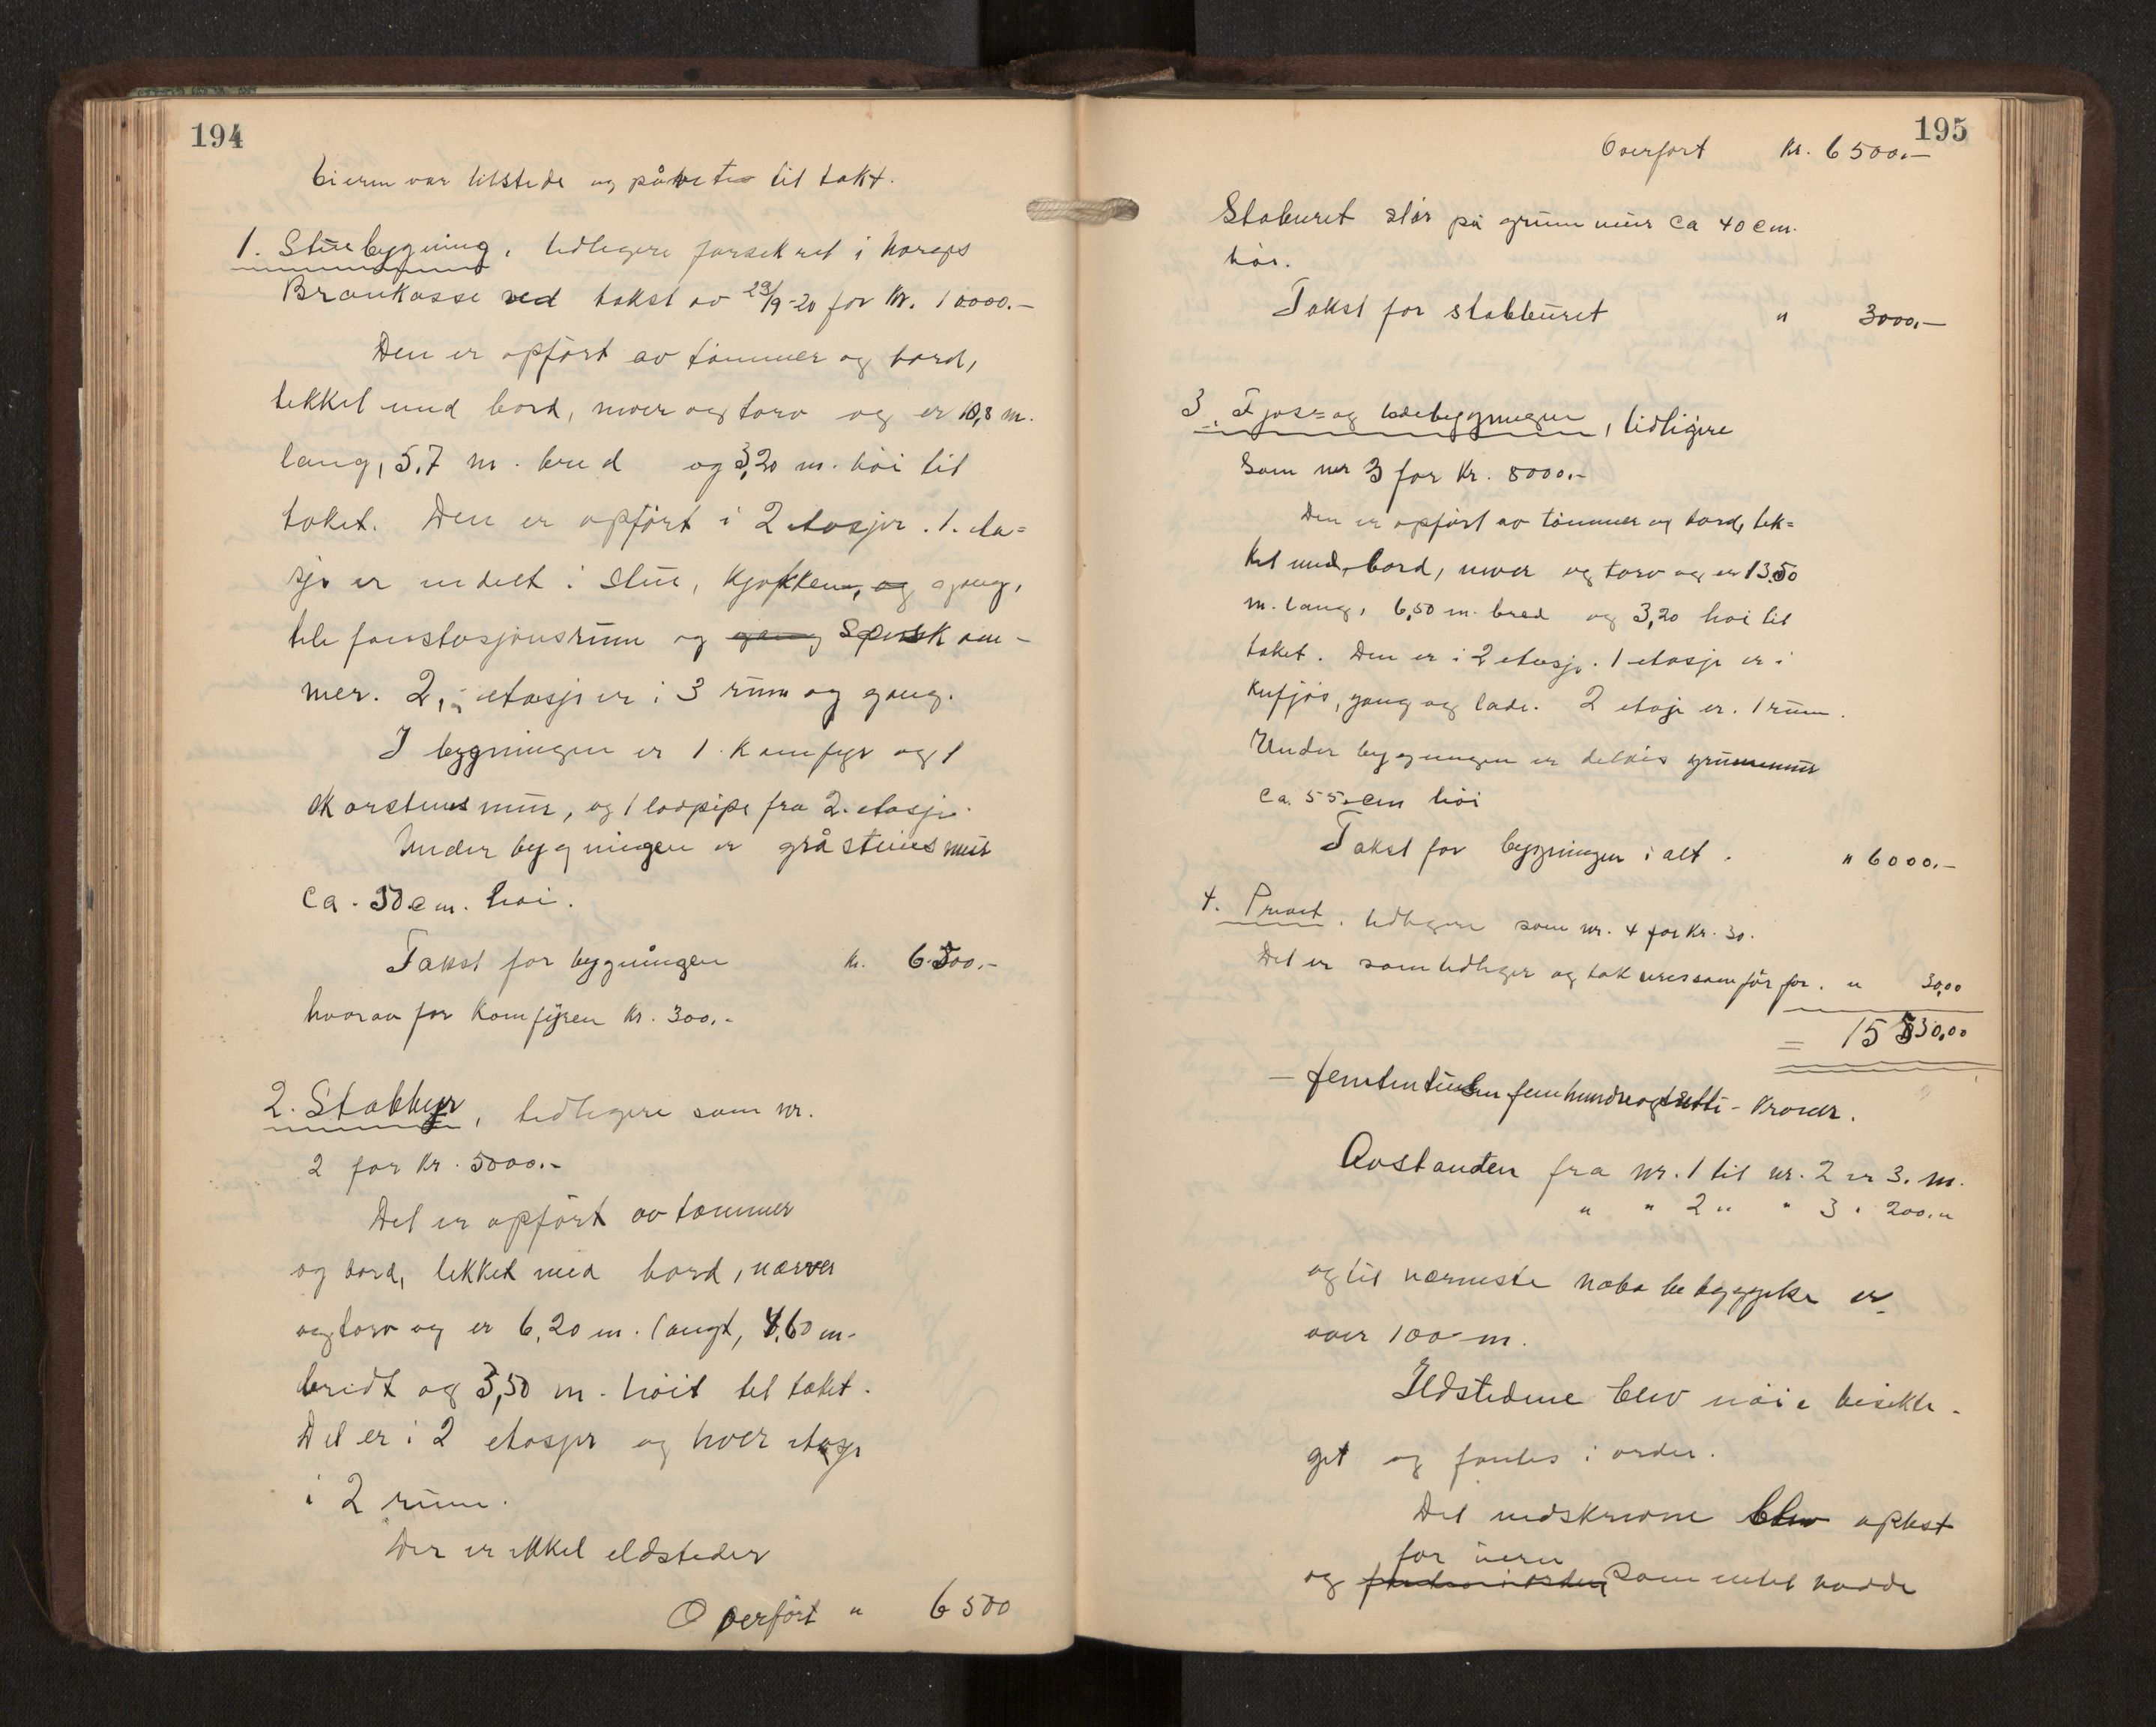 194
Eieren var tilstede og påviste til takt.
1. Stuebygning, tidligere forsekret i Norges
Brankasse ved takst av 29/9-20 for Kr. 10000.-
Den er opført av tømmer og bord,
tekket med bord, never og torv og er 10,8 m.
lang, 5,7 m. bred og 3,20 m. høi til
taket. Den er opført i 2 etasjer. 1. eta=
sje er indelt i stue, kjøkken, og gang,
telefonstasjonsrum og gang Spiskam-
mer. 2, etasje er i 3 rum og gang.
I bygningen er 1 Komfyr og 1
skorstensmur, og 1 lodpipe fra 2. etasje.
Under bygningen er gråstensmur
Ca. 50 cm. høi.
Takst for bygningen kr. 6.500.-
hvorav for Komfyren Kr. 300.-
2. Stabbur, tidligere som nr.
2 for Kr. 5000.-
Det er opført av tømmer
og bord, tekket med bord, never
og torv og er 6,20 m. langt, 4,60 m.
bredt og 3,50 m. høit til taket.
Det er i 2 etasjer og hver etasje
i 2 rum.
Der er ikke ildsteder
Overført " 6500
195
Overført Kr. 6500.-
Staburet står på grunmur ca 40 cm.
høi.
Takst for stabburet " 3000.-
3. Fjøs= og ladebygningen, tidligere
som nr 3 for Kr. 8000.-
Den er opført av tømmer og bord, tek=
ket med bord, never og torv og er 13.50
m. lang, 6,50 m. bred og 3,20 høi til
taket. Den er i 2 etasje. 1 etasje er i
Kufjøs, gang og lade. 2 etasje er 1 rum.
Under bygningen er delvis grunnmur
Ca. 55 cm høi
Takst for bygningen i alt. " 6000.-
4. Privet. tidligere som nr. 4 for Kr. 30.
Det er som tidliger og takseres som før for. " 30,00
= 15530,00
- femtentusen femhundreogtretti - Kroner.
Avstanden fra nr. 1 til nr. 2 er 3. m.
" " 2 " " 3 " 200. "
og til nærmeste nabobebyggelse er
over 100 m.
Ildstedene blev nøie besikti-
get og fantes i orden.
Det nedskrevne blev oplest
for
og som intet hadde